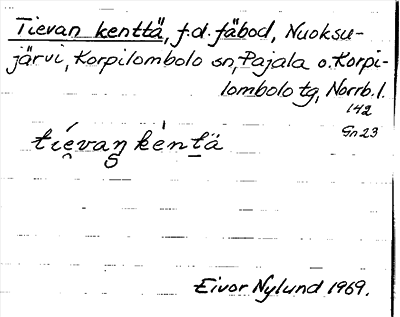 Tievan kenttä, f.d. fäbod, Nuoksu-
järvi, Korpilombolo sn, Pajala o. Korpi-
lombolo tg, Norrb. l.
142
Gn 23
tíevaŋ kèntä
Eivor Nylund 1969.